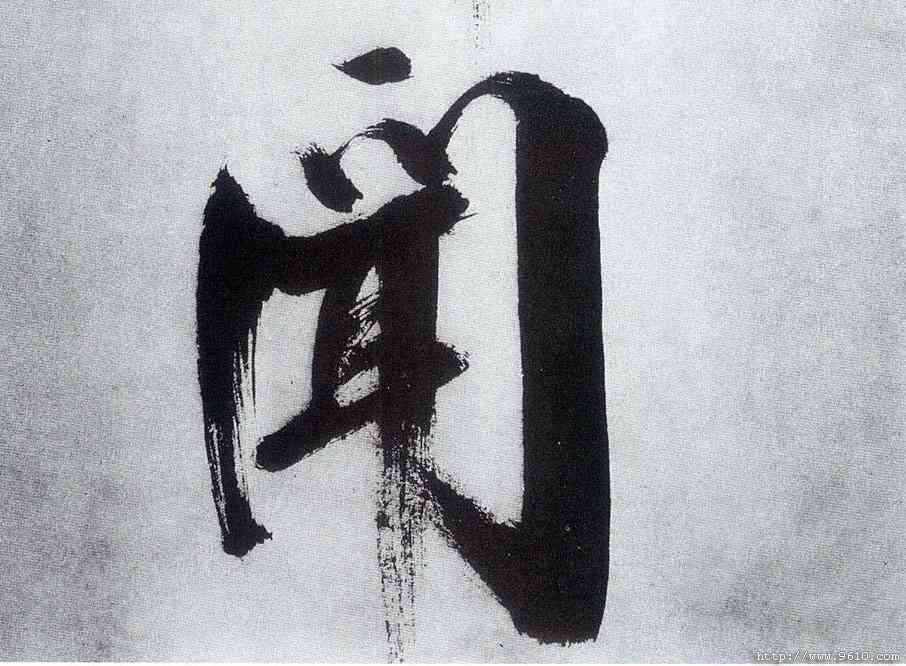 聞
http://www.9610.com